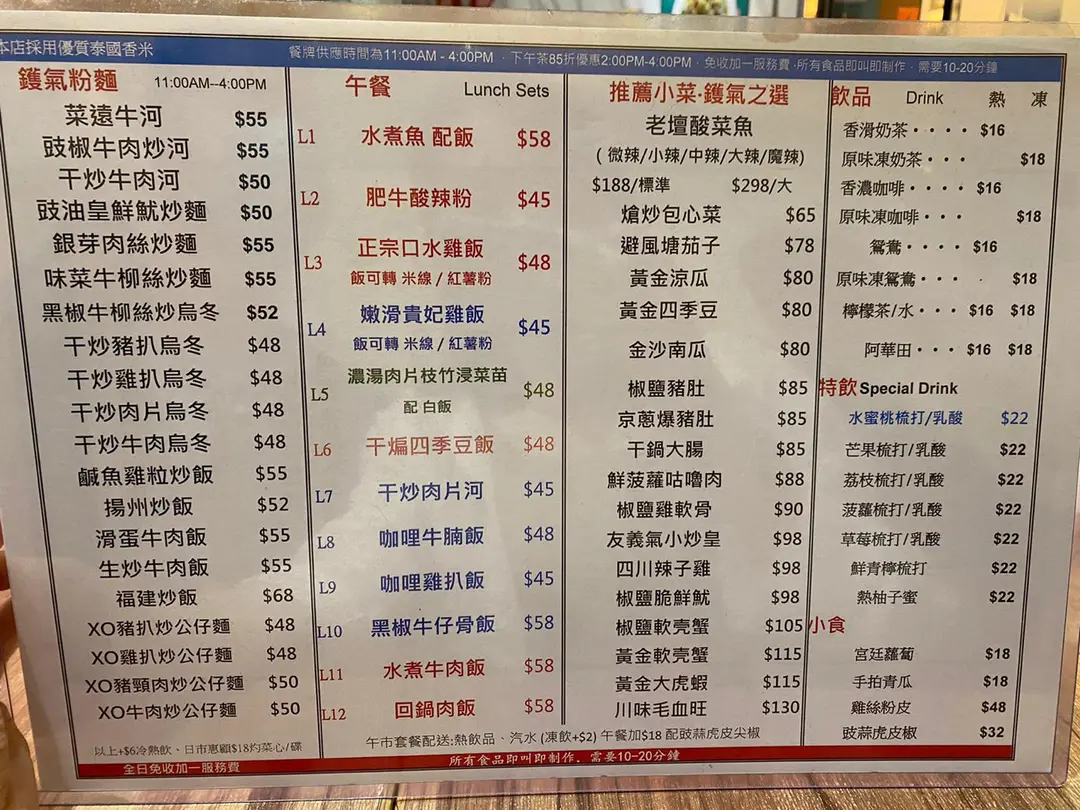 本店採用優質泰國香米
餐牌供應時間為11:00AM - 4:00PM · 下午茶85折優惠2:00PM-4:00PM · 免收加一服務費 ·所有食品即叫即制作 · 需要10-20分鐘
鑊氣粉麵 11:00AM--4:00PM
菜遠牛河 $55
豉椒牛肉炒河 $55
干炒牛肉河 $50
豉油皇鮮魷炒麵 $50
銀芽肉絲炒麵 $55
味菜牛柳絲炒麵 $55
黑椒牛柳絲炒烏冬 $52
干炒豬扒烏冬 $48
干炒雞扒烏冬 $48
干炒肉片烏冬 $48
干炒牛肉烏冬 $48
鹹魚雞粒炒飯 $55
揚州炒飯 $52
滑蛋牛肉飯 $55
生炒牛肉飯 $55
福建炒飯 $68
XO豬扒炒公仔麵 $48
XO雞扒炒公仔麵 $48
XO豬頸肉炒公仔麵 $50
XO牛肉炒公仔麵 $50
以上+$6冷熱飲、日市惠顧$18灼菜心/碟
全日免收加一服務費
午餐 Lunch Sets
L1 水煮魚 配飯 $58
L2 肥牛酸辣粉 $45
L3 正宗口水雞飯 $48
飯可轉 米線 / 紅薯粉
L4 嫩滑貴妃雞飯 $45
飯可轉 米線 / 紅薯粉
L5 濃湯肉片枝竹浸菜苗 $48
配 白飯
L6 干煸四季豆飯 $48
L7 干炒肉片河 $45
L8 咖哩牛腩飯 $48
L9 咖哩雞扒飯 $45
L10 黑椒牛仔骨飯 $58
L11 水煮牛肉飯 $58
L12 回鍋肉飯 $58
午市套餐配送:熱飲品、汽水 (凍飲+$2) 午餐加$18 配豉蒜虎皮尖椒
推薦小菜·鑊氣之選
老壇酸菜魚
( 微辣/小辣/中辣/大辣/魔辣)
$188/標準 $298/大
熗炒包心菜 $65
避風塘茄子 $78
黃金涼瓜 $80
黃金四季豆 $80
金沙南瓜 $80
椒鹽豬肚 $85
京蔥爆豬肚 $85
干鍋大腸 $85
鮮菠蘿咕嚕肉 $88
椒鹽雞軟骨 $90
友義氣小炒皇 $98
四川辣子雞 $98
椒鹽脆鮮魷 $98
椒鹽軟壳蟹 $105
黃金軟壳蟹 $115
黃金大虎蝦 $115
川味毛血旺 $130
飲品 Drink 熱 凍
香滑奶茶 · · · · $16
原味凍奶茶 · · · $18
香濃咖啡 · · · · $16
原味凍咖啡 · · · $18
鴛鴦 · · · · $16
原味凍鴛鴦 · · · · $18
檸檬茶/水 · · · $16 $18
阿華田 · · · $16 $18
特飲 Special Drink
水蜜桃梳打/乳酸 $22
芒果梳打/乳酸 $22
荔枝梳打/乳酸 $22
菠蘿梳打/乳酸 $22
草莓梳打/乳酸 $22
鮮青檸梳打 $22
熱柚子蜜 $22
小食
宮廷蘿蔔 $18
手拍青瓜 $18
雞絲粉皮 $48
豉蒜虎皮椒 $32
所有食品即叫即制作．需要10-20分鐘